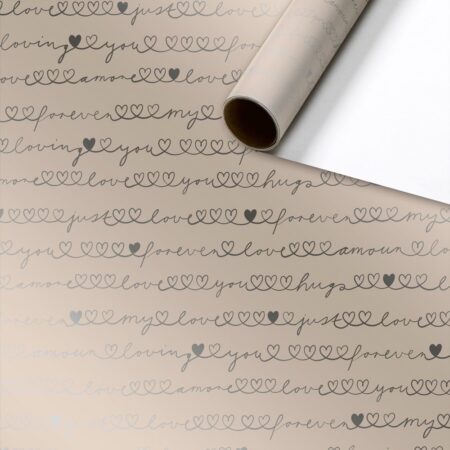 love just love
loving you forever
love amore love
forever my
loving you
more love you hugs
just love forever my
you forever love amour
amore love you hugs
my love just love
amour loving you forever
amore love you
love forever my